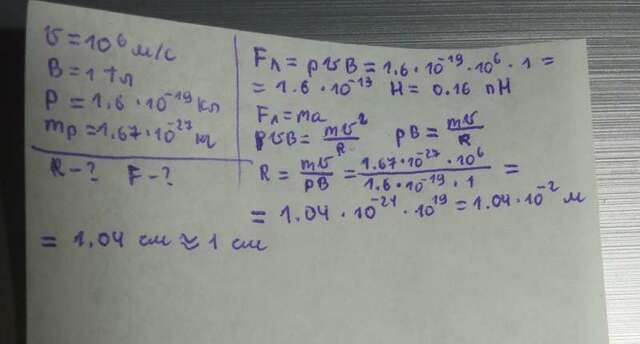 v = 10⁶ м/с
B = 1 Тл
p = 1.6 · 10⁻¹⁹ Кл
mp = 1.67 · 10⁻²⁷ кг
R - ? F - ?
Fл = pvB = 1.6 · 10⁻¹⁹ · 10⁶ · 1 =
= 1.6 · 10⁻¹³ Н = 0.16 пН
Fл = ma
pvB = mv²/R pB = mv/R
R = mv/pB = 1.67 · 10⁻²⁷ · 10⁶ / 1.6 · 10⁻¹⁹ · 1 =
= 1.04 · 10⁻²¹ · 10¹⁹ = 1.04 · 10⁻² м
= 1.04 см ≈ 1 см